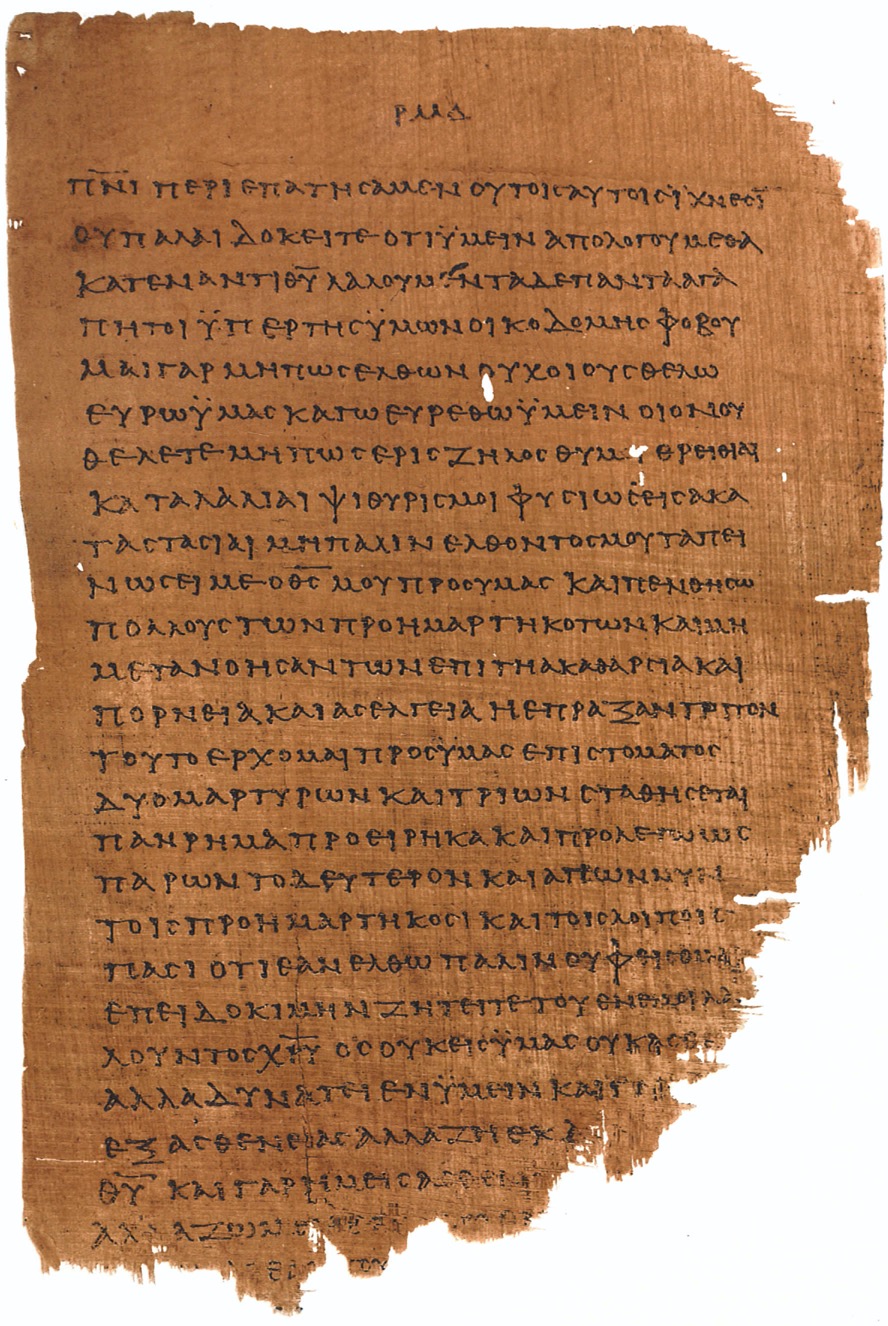 ΡΜΔ
ΠΝΙ ΠΕΡΙΕΠΑΤΗCΑΜΕΝ ΟΥΤΟΙCΑΥΤΟΙCΪΧΝΕCΙ
ΟΥΠΑΛΑΙ ΔΟΚΕΙΤΕ ΟΤΙΫΜΕΙΝ ΑΠΟΛΟΓΟΥΜΕΘΑ
ΚΑΤΕΝΑΝΤΙΘΥ ΛΑΛΟΥΜΕΝΤΑΔΕΠΑΝΤΑΑΓΑ
ΠΗΤΟΙ ΫΠΕΡΤΗCΫΜΩΝΟΙΚΟΔΟΜΗC ΦΟΒΟΥ
ΜΑΙΓΑΡ ΜΗΠΩCΕΛΘΩΝ ΟΥΧΟΙΟΥCΘΕΛΩ
ΕΥΡΩΫΜΑC ΚΑΓΩΕΥΡΕΘΩΫΜΕΙΝ ΟΙΟΝΟΥ
ΘΕΛΕΤΕ ΜΗΠΩCΕΡΙC ΖΗΛΟC ΘΥΜΟΙ ΕΡΕΙΘΙΑΙ
ΚΑΤΑΛΑΛΙΑΙ ΨΙΘΥΡΙCΜΟΙ ΦΥCΙΩCΕΙCΑΚΑ
ΤΑCΤΑCΙΑΙ ΜΗΠΑΛΙΝ ΕΛΘΟΝΤΟCΜΟΥΤΑΠΕΙ
ΝΩCΕΙ ΜΕ ΟΘC ΜΟΥ ΠΡΟCΥΜΑC ΚΑΙΠΕΝΘΗCΩ
ΠΟΛΛΟΥC ΤΩΝΠΡΟΗΜΑΡΤΗΚΟΤΩΝ ΚΑΙΜΗ
ΜΕΤΑΝΟΗCΑΝΤΩΝ ΕΠΙΤΗΑΚΑΘΑΡCΙΑ ΚΑΙ
ΠΟΡΝΕΙΑ ΚΑΙ ΑCΕΛΓΕΙΑ ΗΕΠΡΑΞΑΝ ΤΡΙΤΟΝ
ΤΟΥΤΟ ΕΡΧΟΜΑΙ ΠΡΟCΫΜΑC ΕΠΙCΤΟΜΑΤΟC
ΔΥΟΜΑΡΤΥΡΩΝ ΚΑΙΤΡΙΩΝ CΤΑΘΗCΕΤΑΙ
ΠΑΝΡΗΜΑ ΠΡΟΕΙΡΗΚΑ ΚΑΙΠΡΟΛΕΓΩΩC
ΠΑΡΩΝ ΤΟΔΕΥΤΕΡΟΝ ΚΑΙΑΠΩΝΝΥΝ
ΤΟΙC ΠΡΟΗΜΑΡΤΗΚΟCΙ ΚΑΙΤΟΙCΛΟΙΠΟΙC
ΠΑCΙ ΟΤΙΕΑΝ ΕΛΘΩ ΠΑΛΙΝ ΟΥΦΕΙCΟΜΑΙ
ΕΠΕΙ ΔΟΚΙΜΗΝ ΖΗΤΕΙΤΕ ΤΟΥ ΕΝΕΜΟΙΛΑ
ΛΟΥΝΤΟC ΧΡΥ ΟC ΟΥΚΕΙCΫΜΑC ΟΥΚΑCΘΕ
ΑΛΛΑΔΥΝΑΤΕΙ ΕΝΫΜΕΙΝ ΚΑΙΓ
ΕΞ ΑCΘΕΝΕΙΑC ΑΛΛΑΖΗ ΕΚ
ΘΥ ΚΑΙΓΑΡ ΗΜΕΙC ΑCΘΕΝ
ΑΛΛΑΖΩΜΕΝ